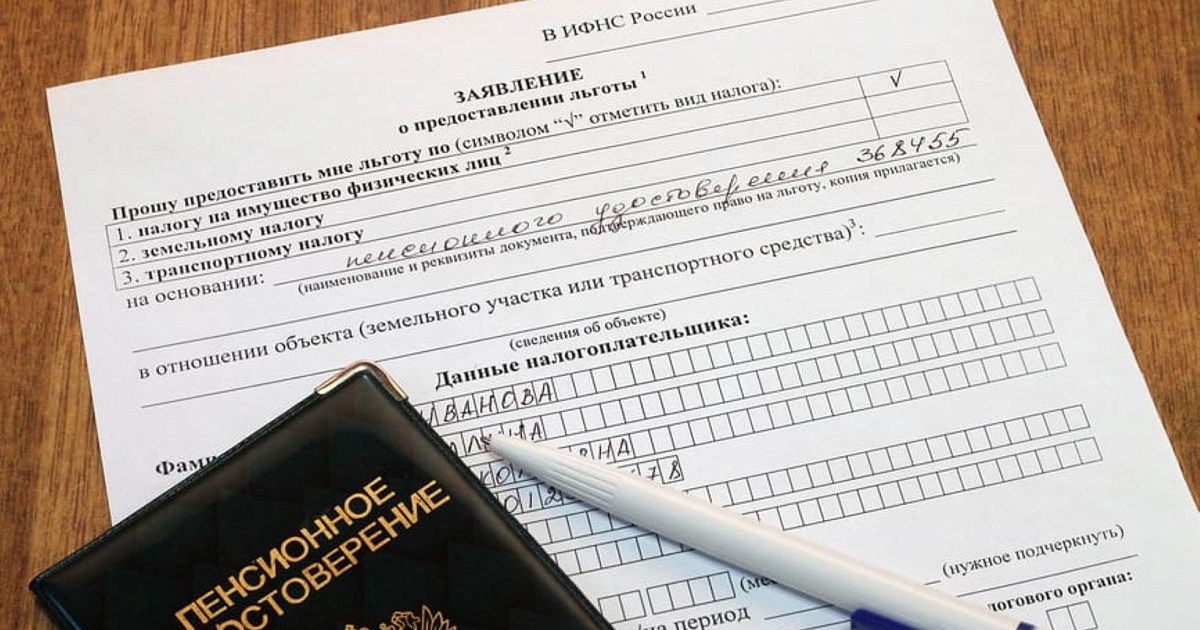 В ИФНС России
ЗАЯВЛЕНИЕ
о предоставлении льготы 1
Прошу предоставить мне льготу по (символом “√” отметить вид налога):
1. налогу на имущество физических лиц 2 √
2. земельному налогу
3. транспортному налогу
на основании: пенсионного удостоверения 368455
(наименование и реквизиты документа, подтверждающего право на льготу, копия прилагается)
в отношении объекта (земельного участка или транспортного средства)3:
(сведения об объекте)
Данные налогоплательщика:
ИВАНОВА
78
(нужное подчеркнуть)
период
ПЕНСИОННОЕ